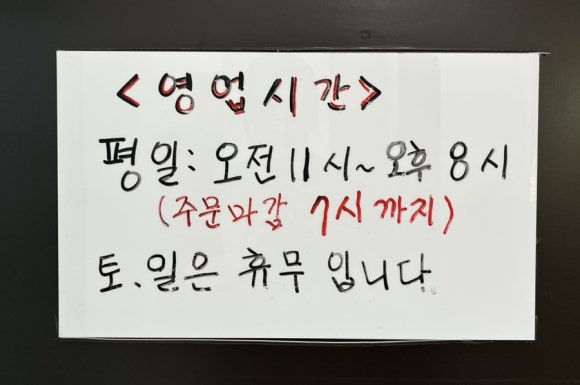 <영업시간>
평일: 오전 11시~ 오후 8시
(주문마감 7시까지)
토.일은 휴무 입니다.